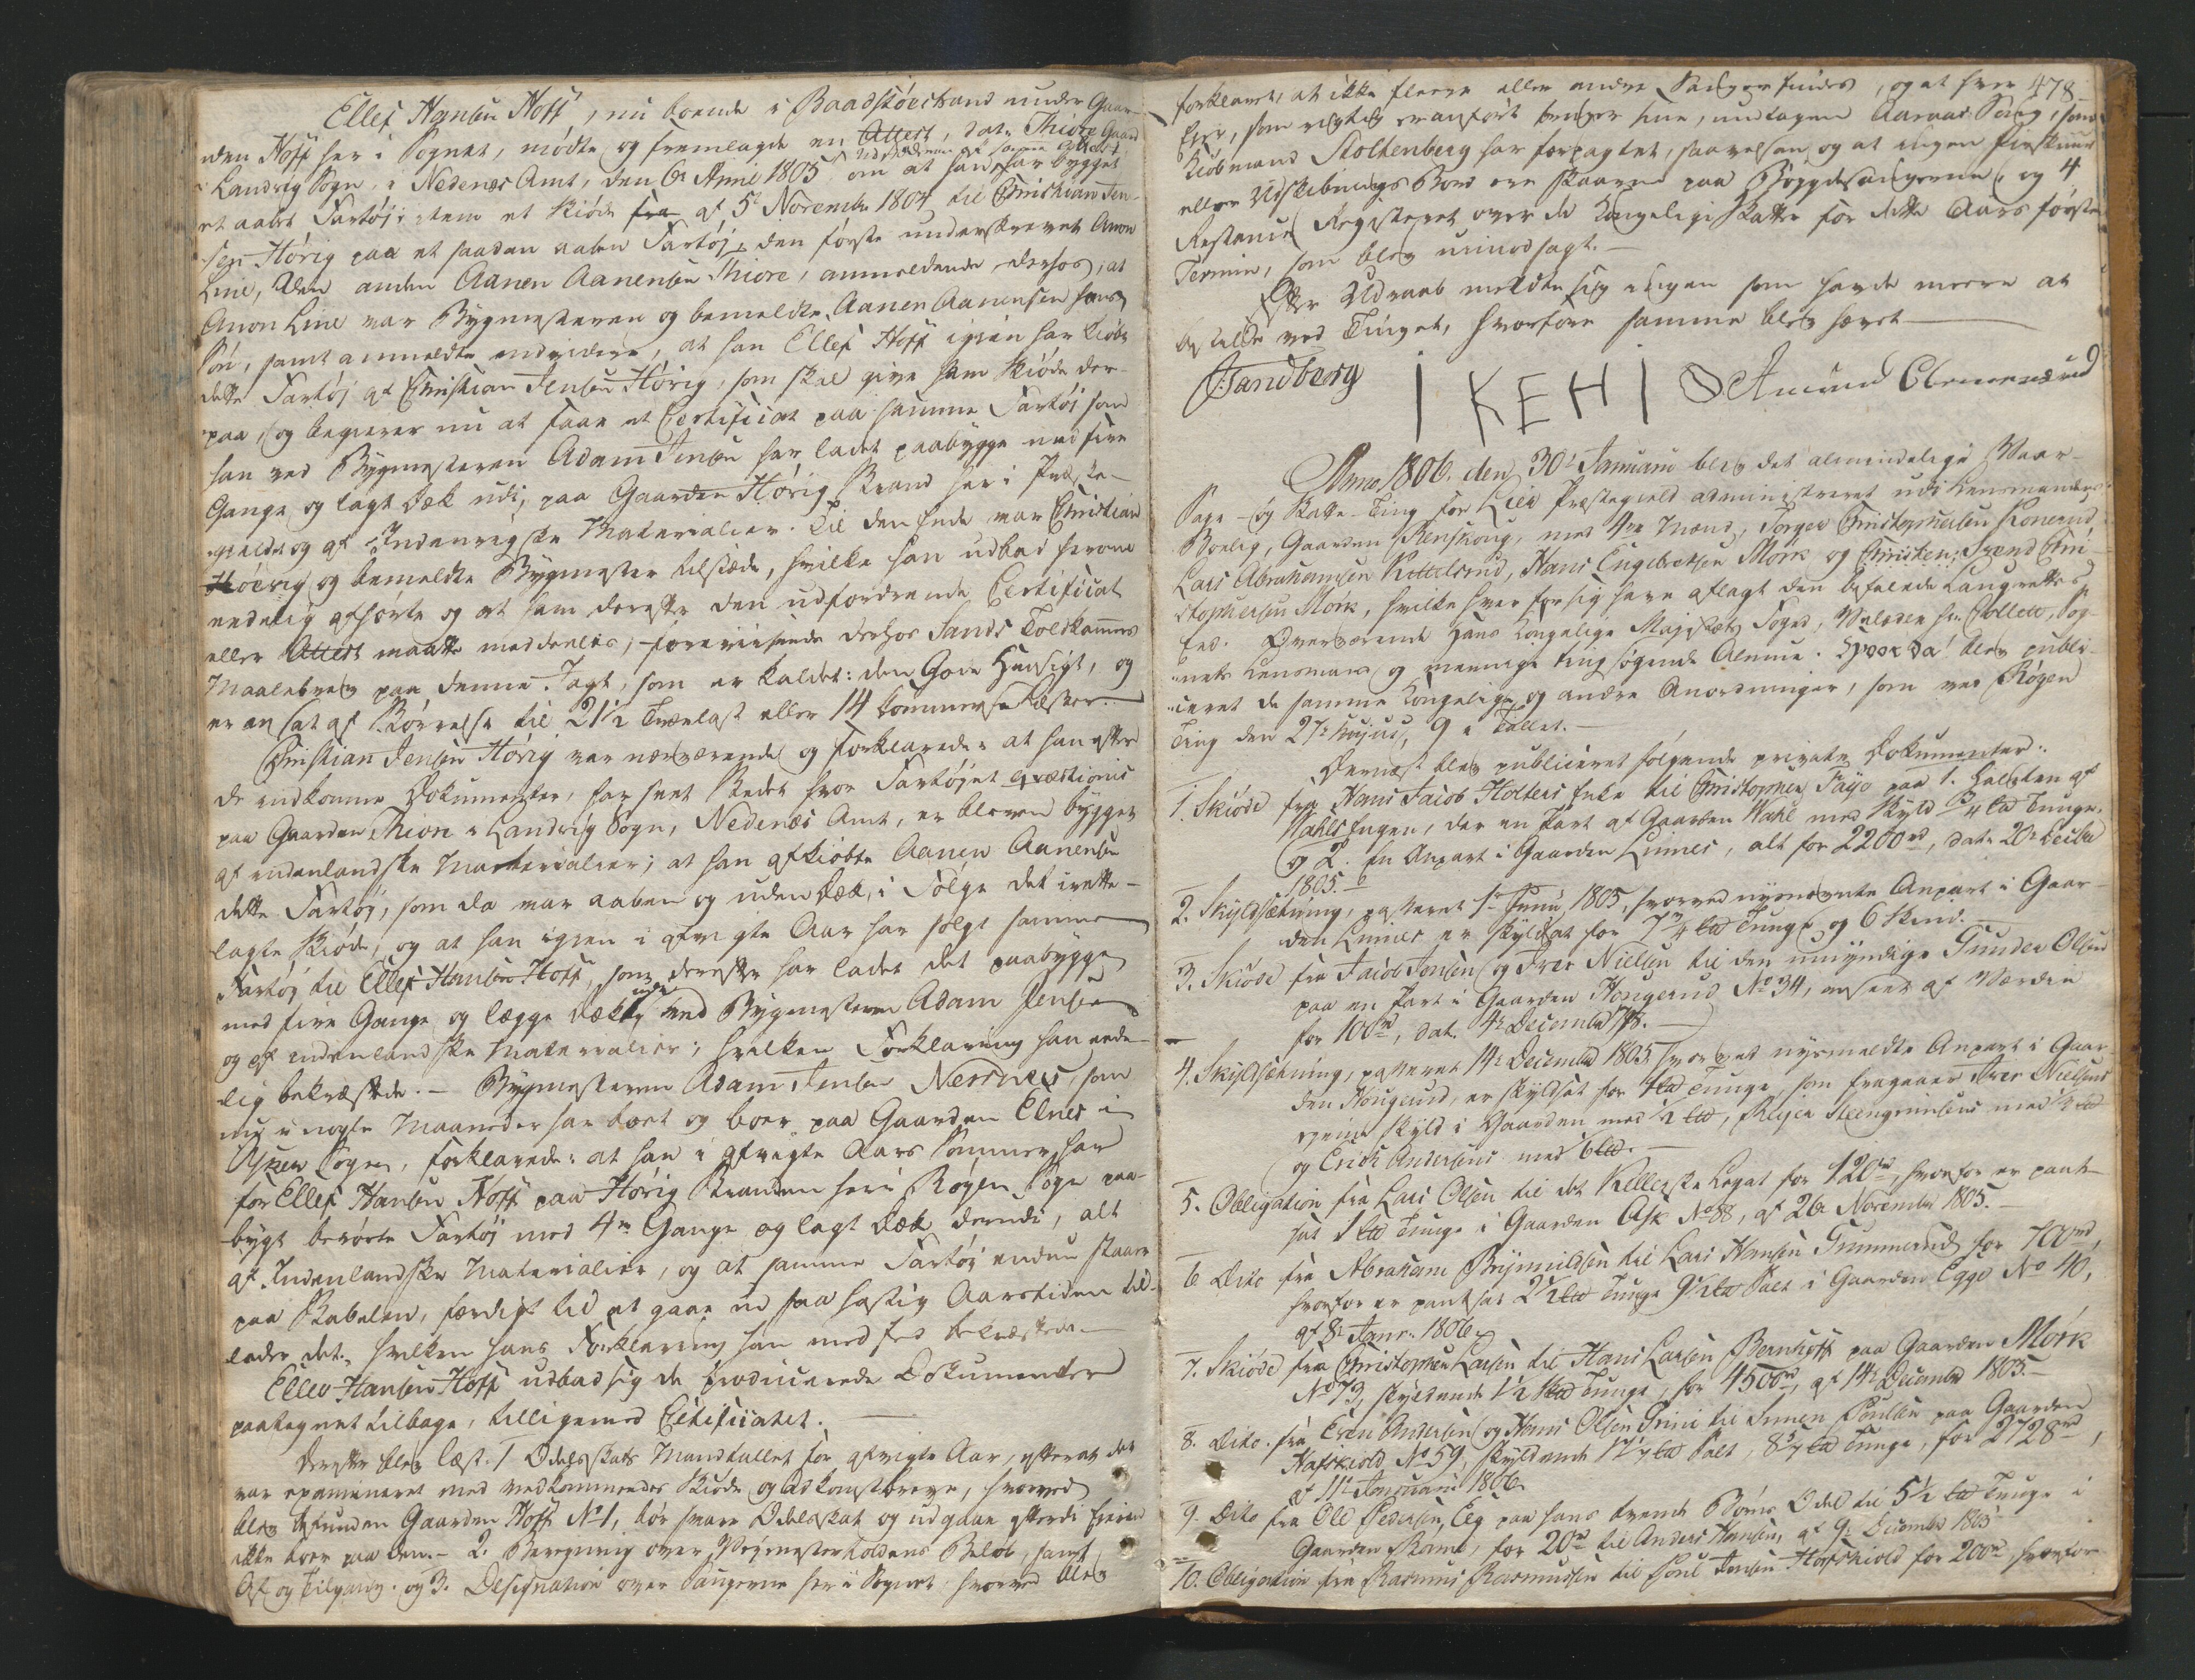 Ellef Hansen Hoff, nu boende i Baadstøestrand under Gaar-
den Hoff her i Sognet, mødte og fremlagde en Attest, dat. Thiore Gaard
i Landvig Sogn, i Nedenæs Amt, den 6t Anni 1805, om at han har bygget
Udstæderen af samme
et aabet Fartøj; item et Skiøde fra af 5t Novembr 1804 til Christian Jen-
sen Hørig paa et saadan aaben Fartøj, den første underskrevet Anon
Line, den anden Aanen Aanensen Thiore, anmeldende derhos, at
Anon Line var Bygmesteren og bemeldte Aanen Aanensen hans
Søn, samt anmeldte endvidere, at han Ellef Hoff igien har kiøbt
dette Fartøj af Christian Jensen Hørig, som skal give ham Skiøde der-
paa, og begierer nu at faae et Certificat paa samme Fartøj som
han ved Bygmesteren Adam Jensen har ladet paabygge med fire
Gange og lagt Dæk udi, paa Gaarden Hørig Strand her i Præste-
gieldet og af Indenrigske Materialier. Til den Ende var Christian
Hoerig og bemeldte Bygmester tilstæde, hvilke han udbad herom
eedelig afhørte og at ham derefter den udfordrende Certificat
eller Attest maatte meddeeles; foreviisende derhos Sands Toldkamers
Maalebrev paa denne Jagt, som er kaldet: den Gode Hensigt, og
er ansat af Størrelse til 21 1/2 Trælast eller 14 Commerse Læster.
Christian Jensen Hørig var nærværende og forklarede: at han efter
de indkomne Dokumenter, har seet Stedet hvor Fartøjet qvæstionis
paa Gaarden Thiore i Landvig Sogn, Nedenæs Amt, er bleven bygget
af indenlandske Materialier; at han afkiøbte Aanen Aanensen
dette Fartøj, som da var aaben og uden Dæk, i Følge det irette-
lagte Skiøde, og at han igien i afvigte Aar har solgt samme
Fartøj til Ellef Hansen Hoff, som derefter har ladet det paabygge
med fire Gange og lægge Dæk inde ved Bygmesteren Adam Jensen
og af indenlandske Materialier; hvilken Forklaring han eede-
lig bekræftede. – Bygmesteren Adam Jensen Nersnes, som
nu i nogle Maaneder har boet og boer paa Gaarden Elnes i
Asker Sogn, forklarede: at han i afvigte Aars Sommer har
for Ellef Hansen Hoff paa Hørig Stranden her i Røgen Sogn paa-
bygt berørte Fartøj med 4re Gange og lagt Dæk derudi, alt
af Indenlandske Materialier, og at samme Fartøj endnu staaer
paa Stabelen, færdigt til at gaae ud saa hastig Aarstiden til-
lader det. hvilken hans Forklaring han med Eed bekræftede.
Ellev Hansen Hoff udbad sig de producerede Dokumenter
paategnet tilbage, tilligemed Certificatet.
Derefter blev læst. 1 Odelsskats Mandtallet for afvigte Aar, efterat det
var examineret med vedkommendes Skiøde og Adkomstbreve, hvorved
blev befunden Gaarden Hoff No 1, bør svare Odelsskat og udgaae efterdi Eieren
ikke boer paa den. – 2. Beregning over Vejmesterholdens Beløb, samt
Af og Tilgang. og 3. Designation over Saugerne her i Sognet, hvorved blev
478
forklaret, at ikke fleere eller andre Sauger findes, og at hver
Eier, som rigtig er anført bruger sine, undtagen Aaraas Saug, som
Kiøbmand Stoltenberg har forpagtet, saavelsom og at ingen
eller Udskibnings Bord ere skaarne paa Bøygdesaugerne; og 4
Restance Registeret over de Kongelige Skatter for dette Aars første
Termin, som blev uimodsagt. –
Efter Udraab meldte sig ingen som havde meere at
bestille ved Tinget, hvorfore samme blev hævet
Sandberg
I K E H I
Amund Clemensrud
Anno 1806. den 30t Januarii blev det almindelige Vaar-
Sage- og Skatte-Ting for Lier Præstegield administreret udi Lensmandens
Boelig, Gaarden Renskoug, med 4re Mænd, Torger Christophersen Konerud,
Lars Abrahamsen Kittelsrud, Hans Engebretsen Mork og Christen: Svend Chri-
stophersen Mork, hvilke hver for sig have aflagt den befalede Laugrettes
Eed. Overværende Hans Kongelige Majestæts Foged, Velædle Hr. Collett, Sog-
nets Lensmand og menige tingsøgende Almue. Hvor da! blev publi-
ceret de samme Kongelige og andre Anordninger, som ved Røgen
Ting den 27t hujus, 9 i Tallet. –
Dernæst blev publiceret følgende private Dokumenter:
1. Skiøde fra Hans Jacob Holters Enke til Christopher Fayo paa 1. Halvten af
Wahls Engen, der en Part af Gaarden Wahl med Skyld 3/4 Lb Tunge.
og 2. En Anpart i Gaarden Linnes, alt for 2200rd, dat. 20 Decbr
1805. –
2. Skyldsætning, passeret 1te Junii 1805, hvorved nysnevnte Anpart i Gaar-
den Linnes er skyldsat for 7 3/4 Lb Tunge og 6 Skind. –
3. Skiøde fra Jacob Jonsen og Iver Nielsen til den umyndige Gunder Olsen
paa en Part i Gaarden Hougerud No 34, anseet af Værdie
for 100rd, dat. 4t December
4. Skyldsætning, passeret 14t December 1805, hvorved nysmeldte Anpart i Gaar-
den Hougerud, er skyldsat for Lb Tunge, som fragaaer Iver Nielsens
egen Skyld i Gaarden med 1/2 Lb, Reyer Steengrimsens med
og Erich Andersens med 6 Lb.
5. Obligation fra Lars Olsen til det Kellerske Legat for 120rd, hvorfor er pant-
sat 1 Lb Tunge i Gaarden Ask No 88, af 26 Novembr 1805.
6 Dito fra Abraham Brynnildsen til Lars Hansen Gummerud for 700rd,
hvorfor er pantsat 2 1/2 Lb Tunge Salt i Gaarden Egge No 40,
af 8t Janr. 1806.
7. Skiøde fra Christopher Larsen til Hans Larsen Bernhoft paa Gaarden Mork
No 73, skyldende 1 1/2 Lb Tunge, for 4500rd, af 14t December 1805. –
8. Dito. fra Even Andersen og Hans Olsen Grini til Simen Poulsen paa Gaarden
Hafskiold No 59, skyldende Lb Salt, Lb Tunge, for 2728rd,
af 11t Januarii 1806.
9. Dito fra Ole Pedersen Eeg paa hans tvende Børns Odel til 5 1/2 Lb Tunge i
Gaarden, for 20rd til Anders Hansen, af 9t December 1805
10. Obligation fra Rasmus Rasmussen til Poul Jensen Hafskiold for 200rd, hvorfor